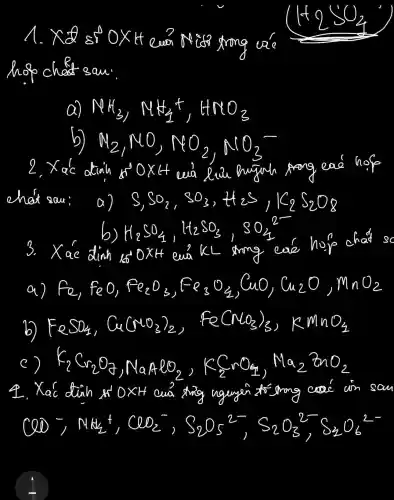 (H2SO4
1. Xđ số OXH của Nitơ trong các
hợp chất sau:
a) NH3, NH4+, HNO3
b) N2, NO, NO2, NO3-
2, Xác định số OXH của lưu huỳnh trong các hợp
chất sau: a) S, SO2, SO3, H2S, K2S2O8
b) H2SO4, H2SO3, SO4 2-
3. Xác định số OXH của KL trong các hợp chất sa
a) Fe, FeO, Fe2O3, Fe3O4, CuO, Cu2O, MnO2
b) FeSO4, Cu(NO3)2, Fe(NO3)3, KMnO4
c) K2Cr2O7, NaAlO2, K2CrO4, Na2ZnO2
4. Xác định số OXH của từng nguyên tố trong các ion sau
ClO-, NH4+, ClO2-, S2O5 2-, S2O3 2-, S4O6 2-
1